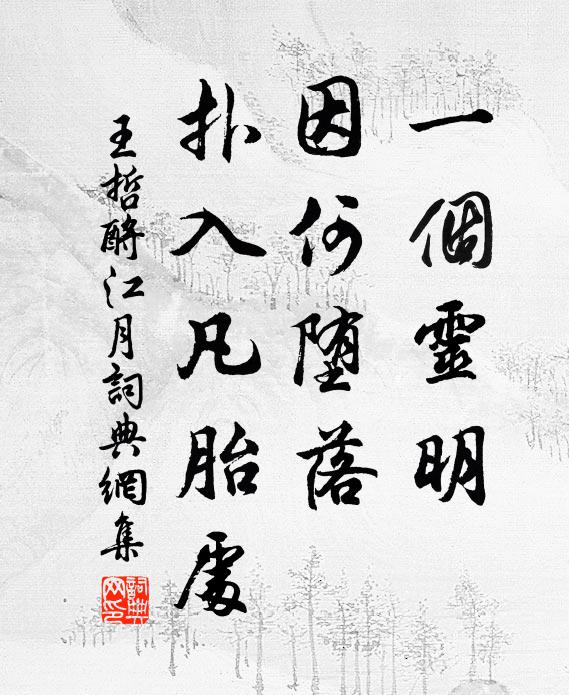 一個靈明
因何墮落
扑入凡胎處
王哲酹江月詞典網集
詞典